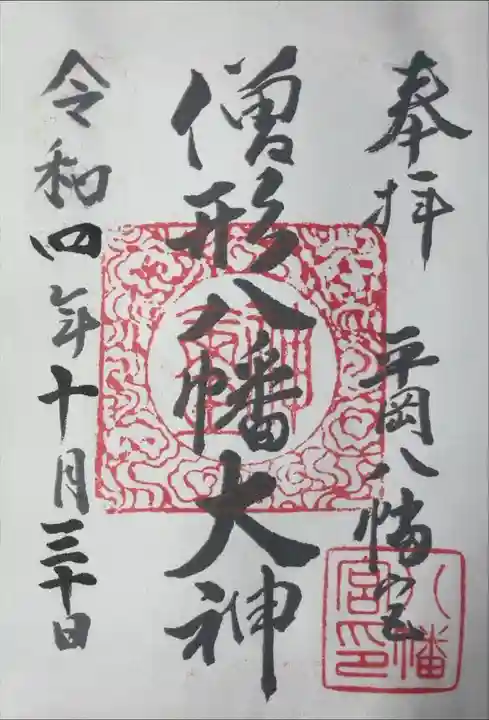 奉拝
平岡八幡宮
八幡宮印
僧形八幡大神
令和四年十月三十日